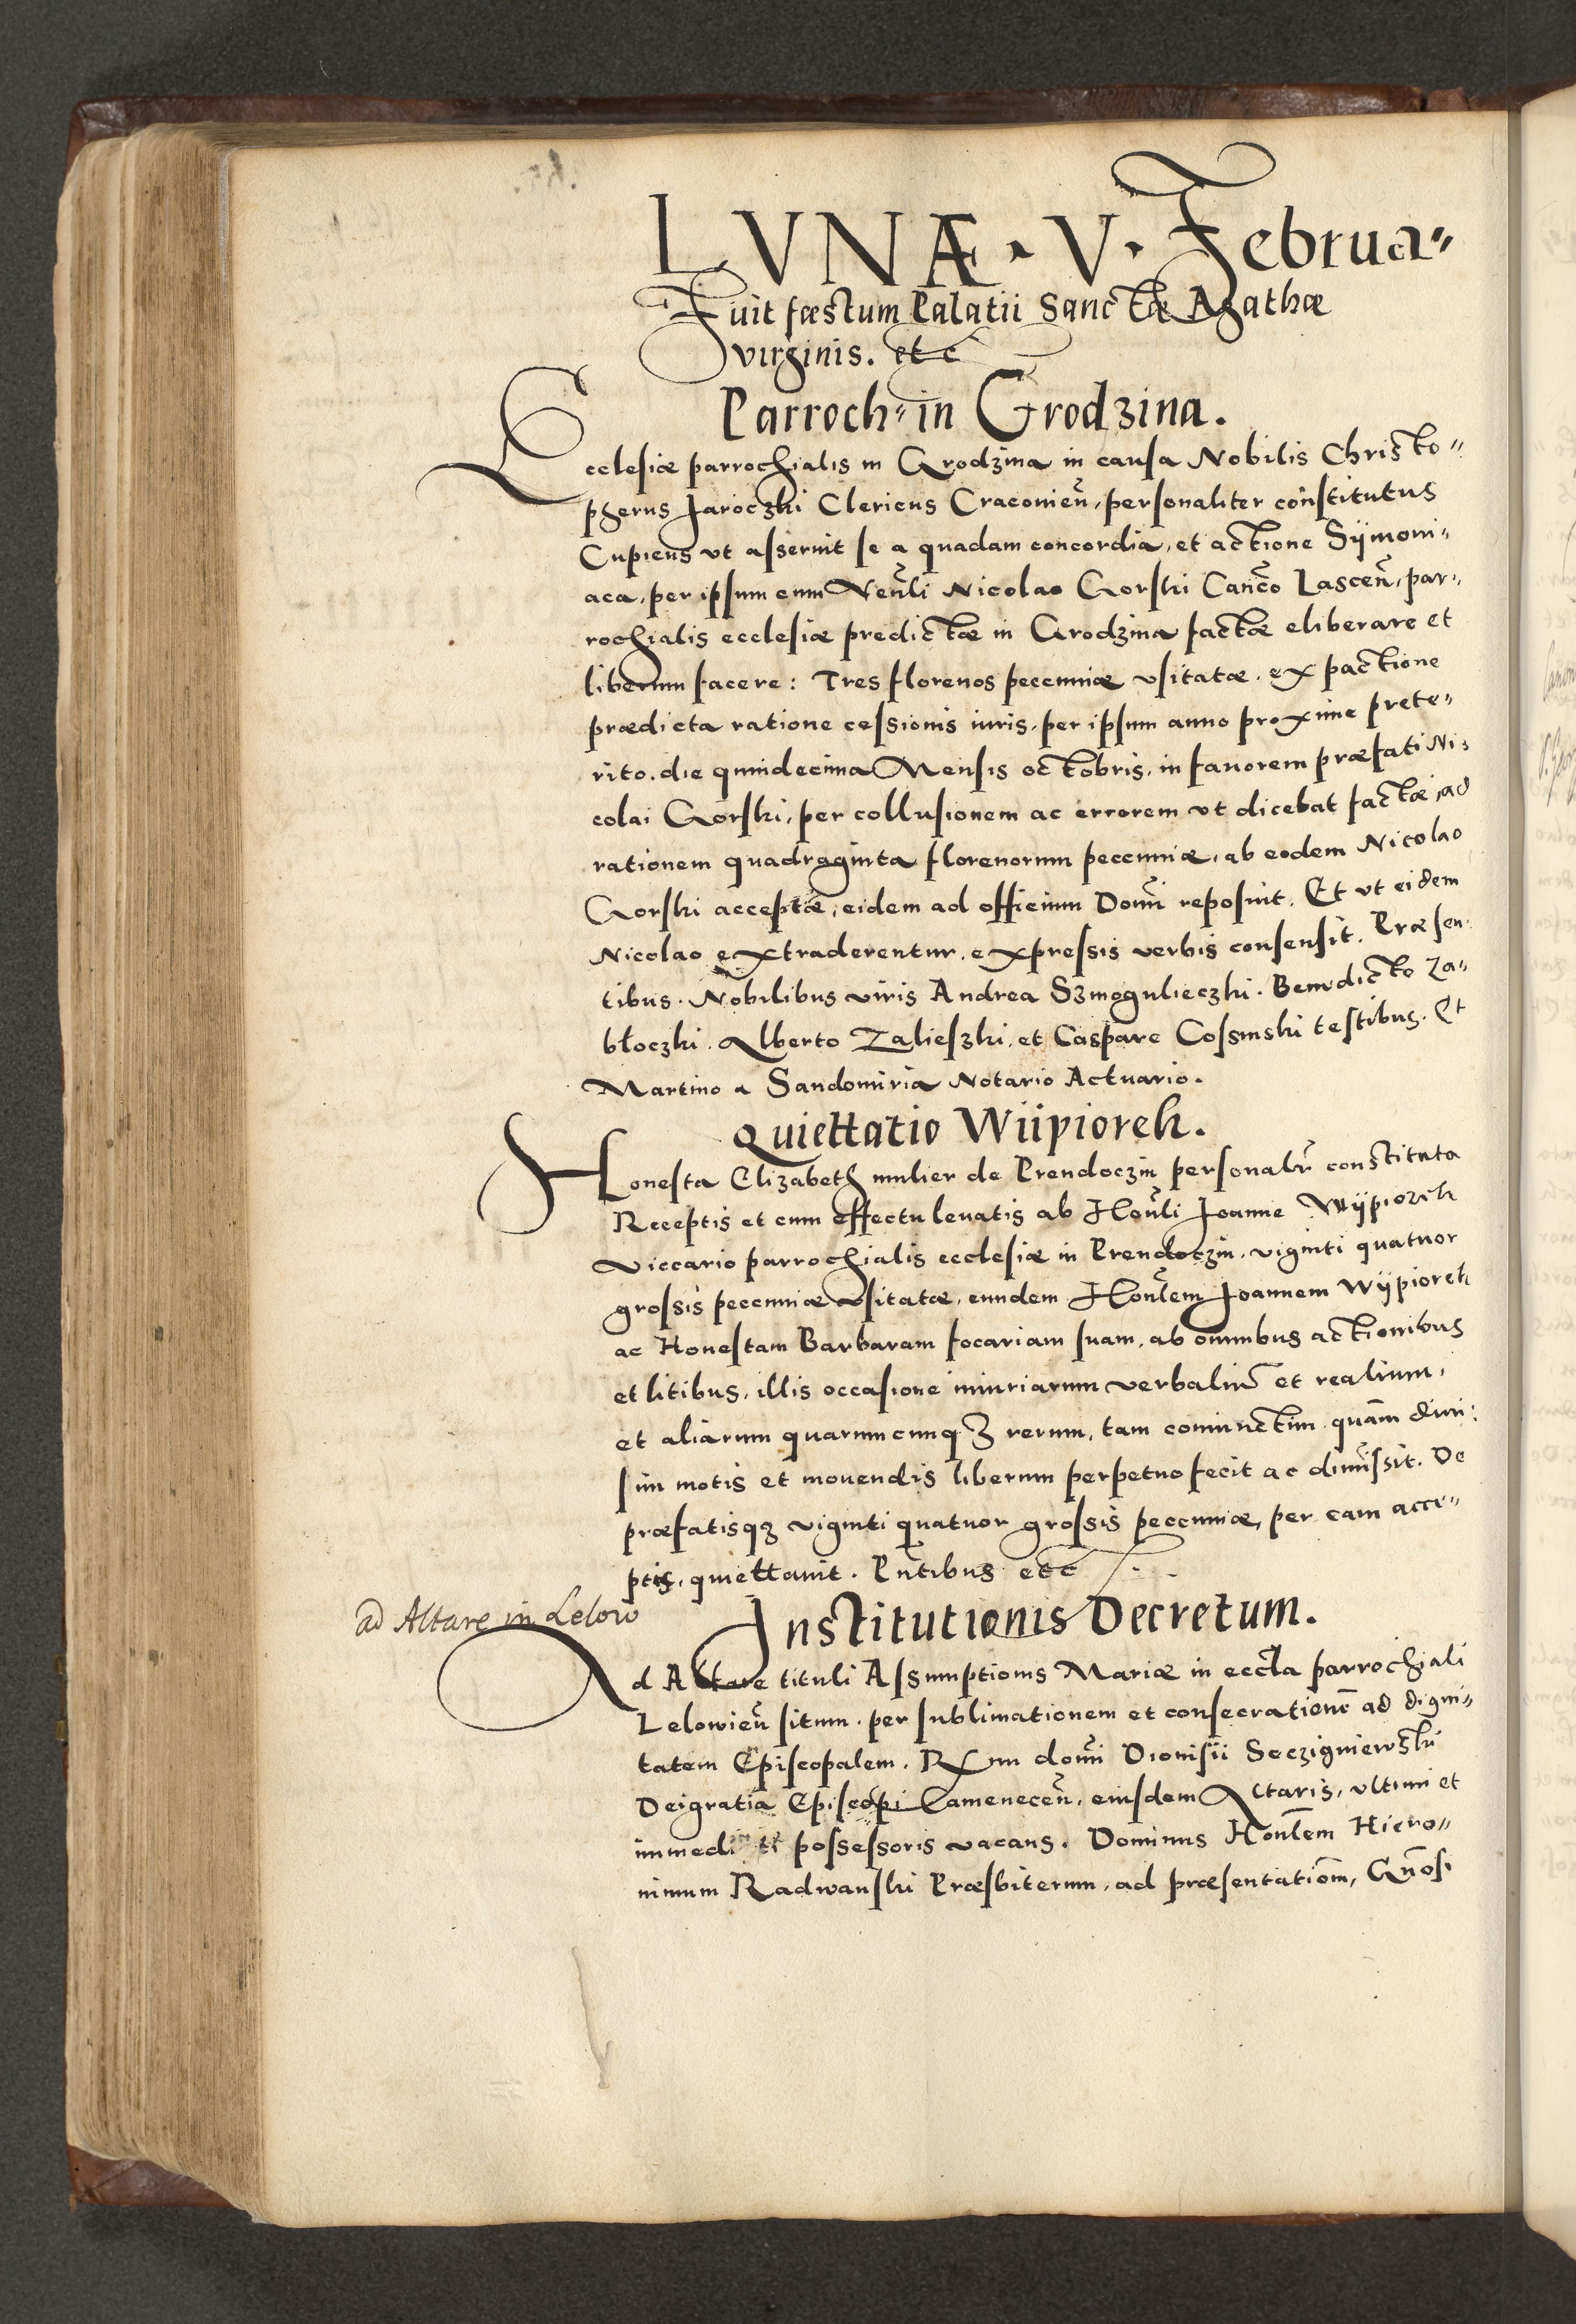 LVNÆ · V · Februa"
Fuit fæstum Palatii Sanctæ Agathæ
virginis. et c
Parroch" in Grodzina.
Ecclesiæ parrochialis in Grodzina in causa Nobilis Christo"
pherus Jaroczki Clericus Cracouieñ, personaliter constitutus
Cupiens vt asseruit se a quadam concordia, et actione Sÿmoni"
aca, per ipsum cum Veñli Nicolao Gorski Cañco Lasceñ, par"
rochialis ecclesiæ predictæ in Grodzina factæ eliberare et
liberum facere : Tres florenos peccuniæ vsitatæ, ex pactione
prædicta ratione cessionis iuris, per ipsum anno proxime prete"
rito, die quindecima Mensis octobris, in fauorem præfati Ni"
colai Gorski, per collusionem ac errorem vt dicebat factæ, ad
rationem quadraginta florenorum peccuniæ, ab eodem Nicolao
Gorski acceptæ, eidem ad officium Domi reposuit. Et vt eidem
Nicolao extraderentur, expressis verbis consensit. Præsen
tibus. Nobilibus viris Andrea Szmogulieczki. Benedicto Za"
błoczki. Alberto Zalieszki, et Caspare Cossinski testibus. Et
Martino a Sandomiria Notario Actuario.
Quiettatio Wiipiorek.
Honesta Elizabeth mulier de Prendoczin personalr̃ constituta
Receptis et cum effectu leuatis ab Hoñli Joanne Wÿpiorek
viccario parrochialis ecclesiæ in Prendoczin, viginti quatuor
grossis peccuniæ vsitatæ, eundem Hoñlem Joannem Wÿpiorek
ac Honestam Barbaram focariam suam, ab omnibus actionibus
et litibus, illis occasione iniuriarum verbaliũ et realium,
et aliarum quarumcunqꝫ rerum, tam coniunctim quam diui"
sim motis et mouendis liberum perpetuo fecit ac dimissit. De
præfatisqꝫ viginti quatuor grossis peccuniæ, per eam acce"
ptis, quiettauit. Pñtibus etc
ad Altare in Lelow
Institutionis Decretum.
Ad Altare tituli Assumptionis Mariæ in eccľa parrochiali
Lelowieñ situm, per sublimationem et consecrationẽ ad digni"
tatem Episcopalem, Rxm domi Dionisii Seczigniewski
Dei gratia Episcopi Camenecen̄, eiusdem Altaris, vltimi et
immediati possessoris vacans. Dominus Hoñlem Hiero"
nimum Radwanski Præsbiterum, ad præsentatioñ, Gñosi